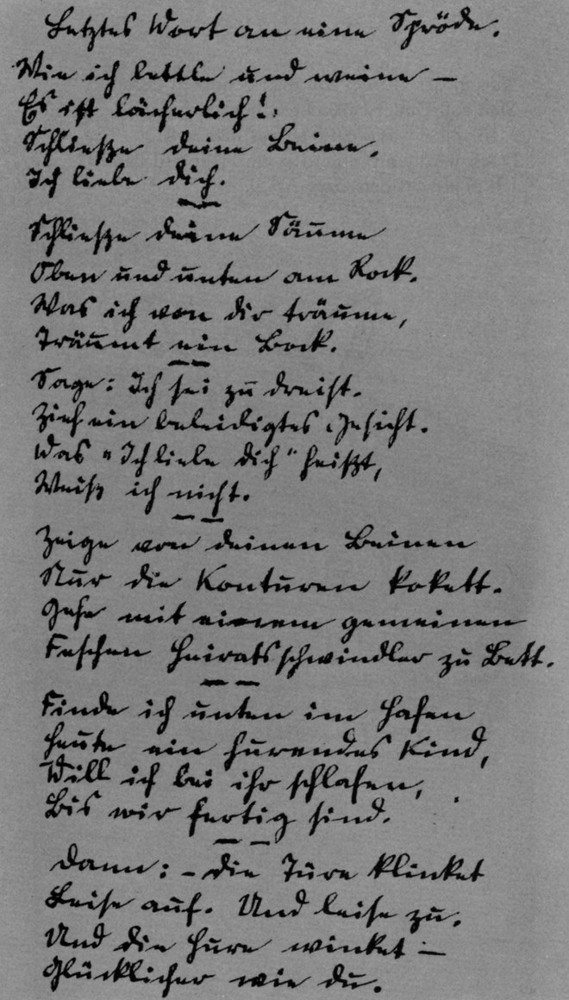 Letztes Wort an eine Spröde.
Wie ich bettle und weine –
Es ist lächerlich!
Schließe deine Beine.
Ich liebe dich.
Schließe deine Säume
Oben und unten am Rock.
Was ich von dir träume,
Träumt ein Bock.
Sage: Ich sei zu dreist.
Zieh ein beleidigtes Gesicht.
Was „Ich liebe dich" heißt,
Weiß ich nicht.
Zeige von deinen Beinen
Nur die Konturen kokett.
Gehe mit einem gemeinen
Feschen Heiratsschwindler zu Bett.
Finde ich unten im Hafen
Heute ein hurendes Kind,
Will ich bei ihr schlafen,
Bis wir fertig sind.
Dann: – Die Türe klinket
Leise auf. Und leise zu.
Und die Hure winket –
Glücklicher wie du.